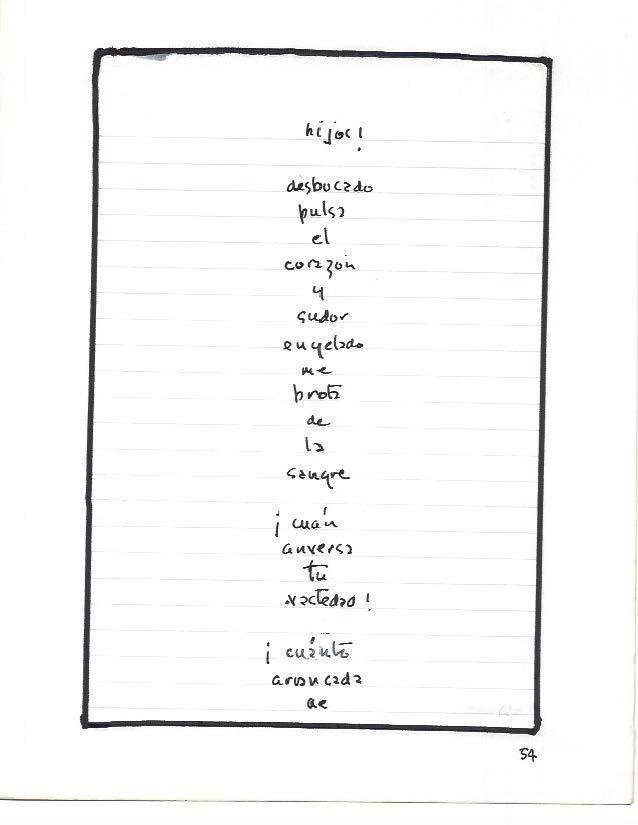 hijos!
desbocado
pulsa
el
corazón
y
sudor
engelado
me
brota
de
la
sangre
¡cuán
anversa
tu
vastedad!
¡cuánto
arrancada
de
54